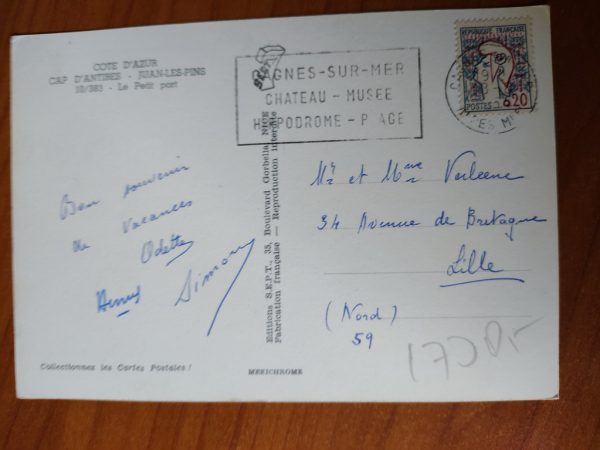 COTE D'AZUR
CAP D'ANTIBES - JUAN-LES-PINS
10/383 - Le Petit port
Bon souvenir
de Vacances
Odette
Simon
Collectionnez les Cartes Postales !
Editions S.E.P.T., 35, Boulevard Gorbella, NICE
Fabrication française — Reproduction interdite
MEXICHROME
GNES-SUR-MER
CHATEAU - MUSEE
H PODROME - P AGE
REPUBLIQUE FRANÇAISE
POSTES
0,20
Mr et Mme Verleene
34 Avenue de Bretagne
Lille
(Nord)
59